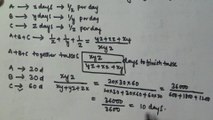 A → x days → 1/x per day
B → y days → 1/y per day
C → z days → 1/z per day
A+B+C → 1/x + 1/y + 1/z = (yz+zx+xy)/xyz
A+B+C together takes xyz/(xy+yz+zx) days to finish task
A → 20 d
B → 30 d
C → 60 d
xyz/(xy+yz+zx) = (20×30×60)/(20×30+30×60+60×20) = 36000/(600+1800+1200)
= 36000/3600 = 10 days.